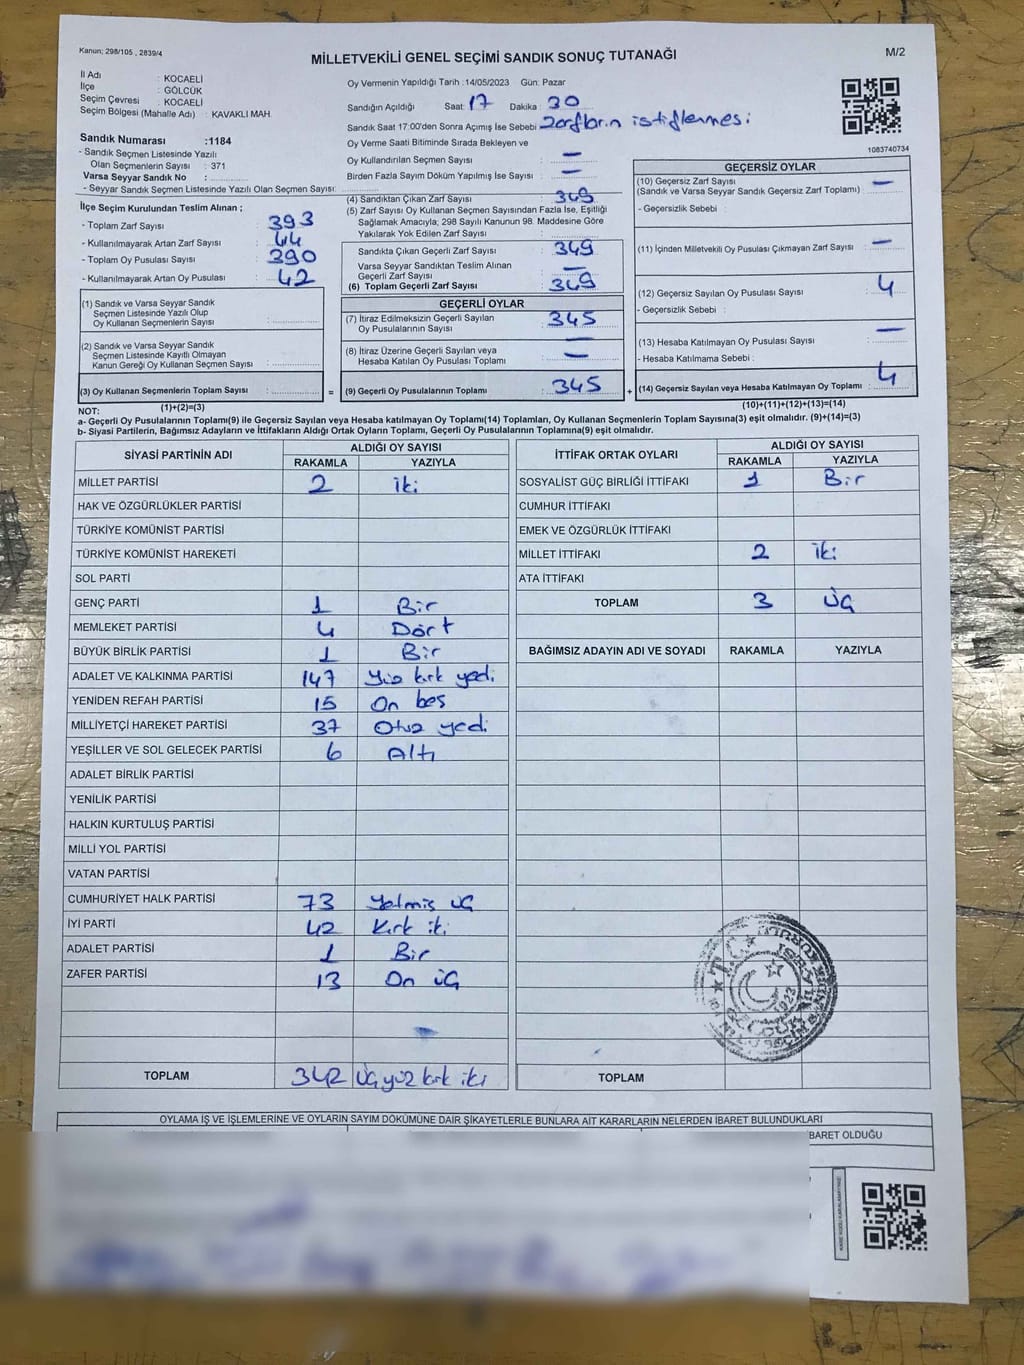 Kanun; 298/105 , 2839/4
MİLLETVEKİLİ GENEL SEÇİMİ SANDIK SONUÇ TUTANAĞI
M/2
İl Adı : KOCAELİ
İlçe : GÖLCÜK
Seçim Çevresi : KOCAELİ
Seçim Bölgesi (Mahalle Adı) : KAVAKLI MAH.
Oy Vermenin Yapıldığı Tarih :14/05/2023 Gün: Pazar
Sandığın Açıldığı Saat 17 Dakika : 30
Sandık Saat 17:00'den Sonra Açımış İse Sebebi Zarfların istiflenmesi
1083740734
Sandık Numarası :1184
- Sandık Seçmen Listesinde Yazılı
Olan Seçmenlerin Sayısı : 371
Varsa Seyyar Sandık No :
- Seyyar Sandık Seçmen Listesinde Yazılı Olan Seçmen Sayısı:
Oy Verme Saati Bitiminde Sırada Bekleyen ve
Oy Kullandırılan Seçmen Sayısı : —
Birden Fazla Sayım Döküm Yapılmış İse Sayısı : —
İlçe Seçim Kurulundan Teslim Alınan ;
- Toplam Zarf Sayısı : 393
- Kullanılmayarak Artan Zarf Sayısı : 44
- Toplam Oy Pusulası Sayısı : 390
- Kullanılmayarak Artan Oy Pusulası : 42
(1) Sandık ve Varsa Seyyar Sandık
Seçmen Listesinde Yazılı Olup
Oy Kullanan Seçmenlerin Sayısı :
(2) Sandık ve Varsa Seyyar Sandık
Seçmen Listesinde Kayıtlı Olmayan
Kanun Gereği Oy Kullanan Seçmen Sayısı :
(3) Oy Kullanan Seçmenlerin Toplam Sayısı : =
(1)+(2)=(3)
(4) Sandıktan Çıkan Zarf Sayısı : 349
(5) Zarf Sayısı Oy Kullanan Seçmen Sayısından Fazla İse, Eşitliği
Sağlamak Amacıyla; 298 Sayılı Kanunun 98. Maddesine Göre
Yakılarak Yok Edilen Zarf Sayısı :
Sandıkta Çıkan Geçerli Zarf Sayısı : 349
Varsa Seyyar Sandıktan Teslim Alınan
Geçerli Zarf Sayısı : —
(6) Toplam Geçerli Zarf Sayısı : 349
GEÇERLİ OYLAR
(7) İtiraz Edilmeksizin Geçerli Sayılan
Oy Pusulalarının Sayısı : 345
(8) İtiraz Üzerine Geçerli Sayılan veya
Hesaba Katılan Oy Pusulası Toplamı : —
(9) Geçerli Oy Pusulalarının Toplamı : 345 +
GEÇERSİZ OYLAR
(10) Geçersiz Zarf Sayısı : —
(Sandık ve Varsa Seyyar Sandık Geçersiz Zarf Toplamı)
- Geçersizlik Sebebi :
(11) İçinden Milletvekili Oy Pusulası Çıkmayan Zarf Sayısı : —
(12) Geçersiz Sayılan Oy Pusulası Sayısı : 4
- Geçersizlik Sebebi :
(13) Hesaba Katılmayan Oy Pusulası Sayısı : —
- Hesaba Katılmama Sebebi :
(14) Geçersiz Sayılan veya Hesaba Katılmayan Oy Toplamı : 4
(10)+(11)+(12)+(13)=(14)
NOT:
a- Geçerli Oy Pusulalarının Toplamı(9) ile Geçersiz Sayılan veya Hesaba katılmayan Oy Toplamı(14) Toplamları, Oy Kullanan Seçmenlerin Toplam Sayısına(3) eşit olmalıdır. (9)+(14)=(3)
b- Siyasi Partilerin, Bağımsız Adayların ve İttifakların Aldığı Ortak Oyların Toplamı, Geçerli Oy Pusulalarının Toplamına(9) eşit olmalıdır.
SİYASİ PARTİNİN ADI ALDIĞI OY SAYISI
RAKAMLA YAZIYLA
MİLLET PARTİSİ 2 iki
HAK VE ÖZGÜRLÜKLER PARTİSİ
TÜRKİYE KOMÜNİST PARTİSİ
TÜRKİYE KOMÜNİST HAREKETİ
SOL PARTİ
GENÇ PARTİ 1 Bir
MEMLEKET PARTİSİ 4 Dört
BÜYÜK BİRLİK PARTİSİ 1 Bir
ADALET VE KALKINMA PARTİSİ 147 Yüz kırk yedi
YENİDEN REFAH PARTİSİ 15 On beş
MİLLİYETÇİ HAREKET PARTİSİ 37 Otuz yedi
YEŞİLLER VE SOL GELECEK PARTİSİ 6 Altı
ADALET BİRLİK PARTİSİ
YENİLİK PARTİSİ
HALKIN KURTULUŞ PARTİSİ
MİLLİ YOL PARTİSİ
VATAN PARTİSİ
CUMHURİYET HALK PARTİSİ 73 Yetmiş üç
İYİ PARTİ 42 Kırk iki
ADALET PARTİSİ 1 Bir
ZAFER PARTİSİ 13 On üç
TOPLAM 342 Üç yüz kırk iki
İTTİFAK ORTAK OYLARI ALDIĞI OY SAYISI
RAKAMLA YAZIYLA
SOSYALİST GÜÇ BİRLİĞİ İTTİFAKI 1 Bir
CUMHUR İTTİFAKI
EMEK VE ÖZGÜRLÜK İTTİFAKI
MİLLET İTTİFAKI 2 iki
ATA İTTİFAKI
TOPLAM 3 üç
BAĞIMSIZ ADAYIN ADI VE SOYADI RAKAMLA YAZIYLA
T.C.
1923
TOPLAM
OYLAMA İŞ VE İŞLEMLERİNE VE OYLARIN SAYIM DÖKÜMÜNE DAİR ŞİKAYETLERLE BUNLARA AİT KARARLARIN NELERDEN İBARET BULUNDUKLARI
BARET OLDUĞU